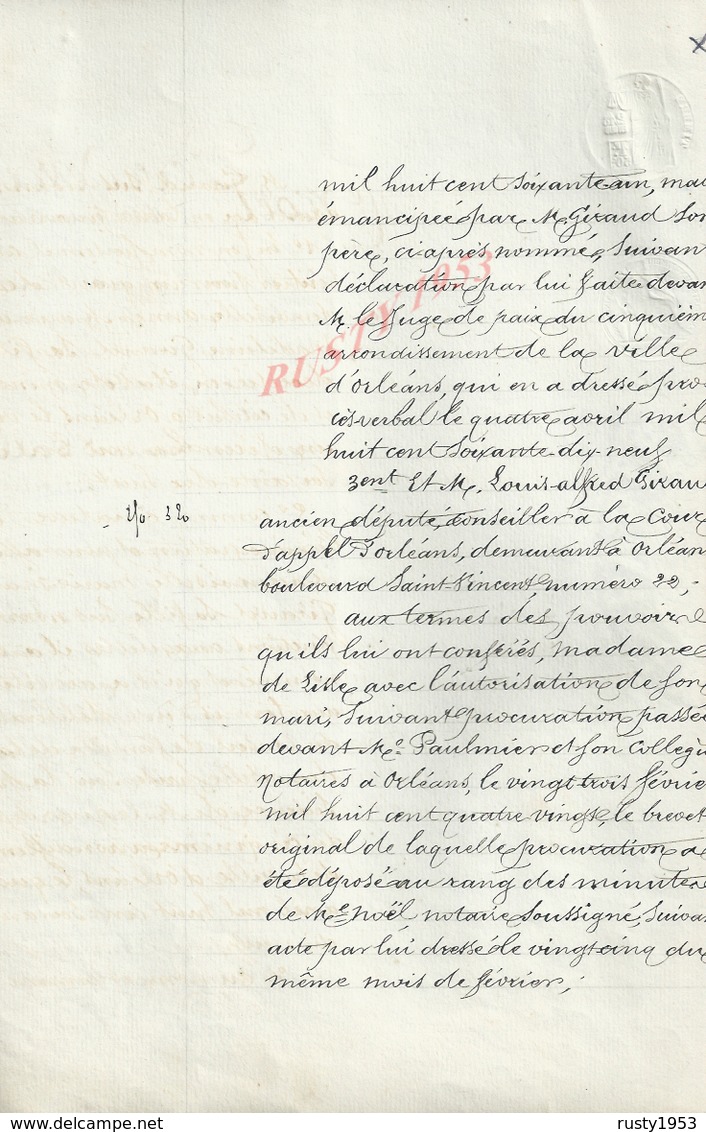 mil huit cent soixante un, ma
émancipée par M. Giraud son
père, ci après nommé, suivan
déclaration par lui faite devan
M. le Juge de paix du cinquièm
arrondissement de la ville
d'Orléans, qui en a dressé pro
cès verbal le quatre avril mil
huit cent soixante dix neuf
3ent Et M. Louis-alfred Girau
ancien député, conseiller à la Cour
d'appel d'orléans, demeurant à Orléan
boulevard Saint-Vincent, numéro 22,
aux termes des pouvoirs
qu'ils lui ont conférés, Madame
de Lisle avec l'autorisation de son
mari, suivant procuration passée
devant Me Paulmier et son collègu
Notaires à Orléans, le vingt trois févrie
mil huit cent quatre vingt, le brevet
original de laquelle procuration a
été déposé au rang des minutes
de Me Noël, notaire soussigné, suivan
acte par lui dressé le vingt cinq du
même mois de février;
RUSTY 1953
www.delcampe.net
rusty1953